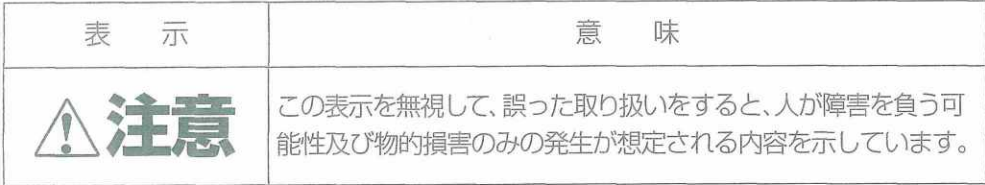 表 示
意 味
⚠注意
この表示を無視して、誤った取り扱いをすると、人が障害を負う可
能性及び物的損害のみの発生が想定される内容を示しています。